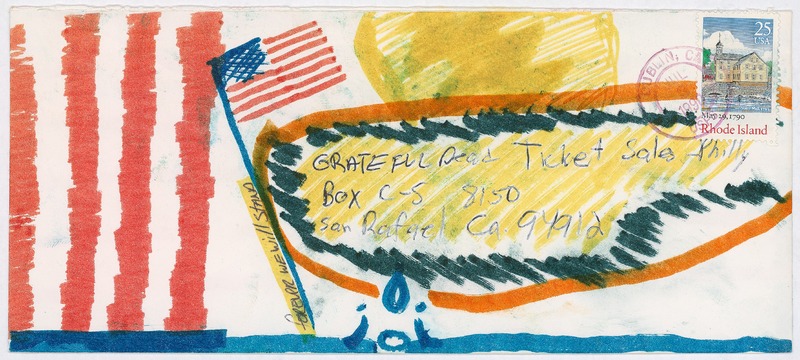 25
USA
May 29, 1790
Rhode Island
GRATEFUL Dead Ticket Sales Philly
Box C-S 8150
San Rafael Ca. 94912
forever we will stand